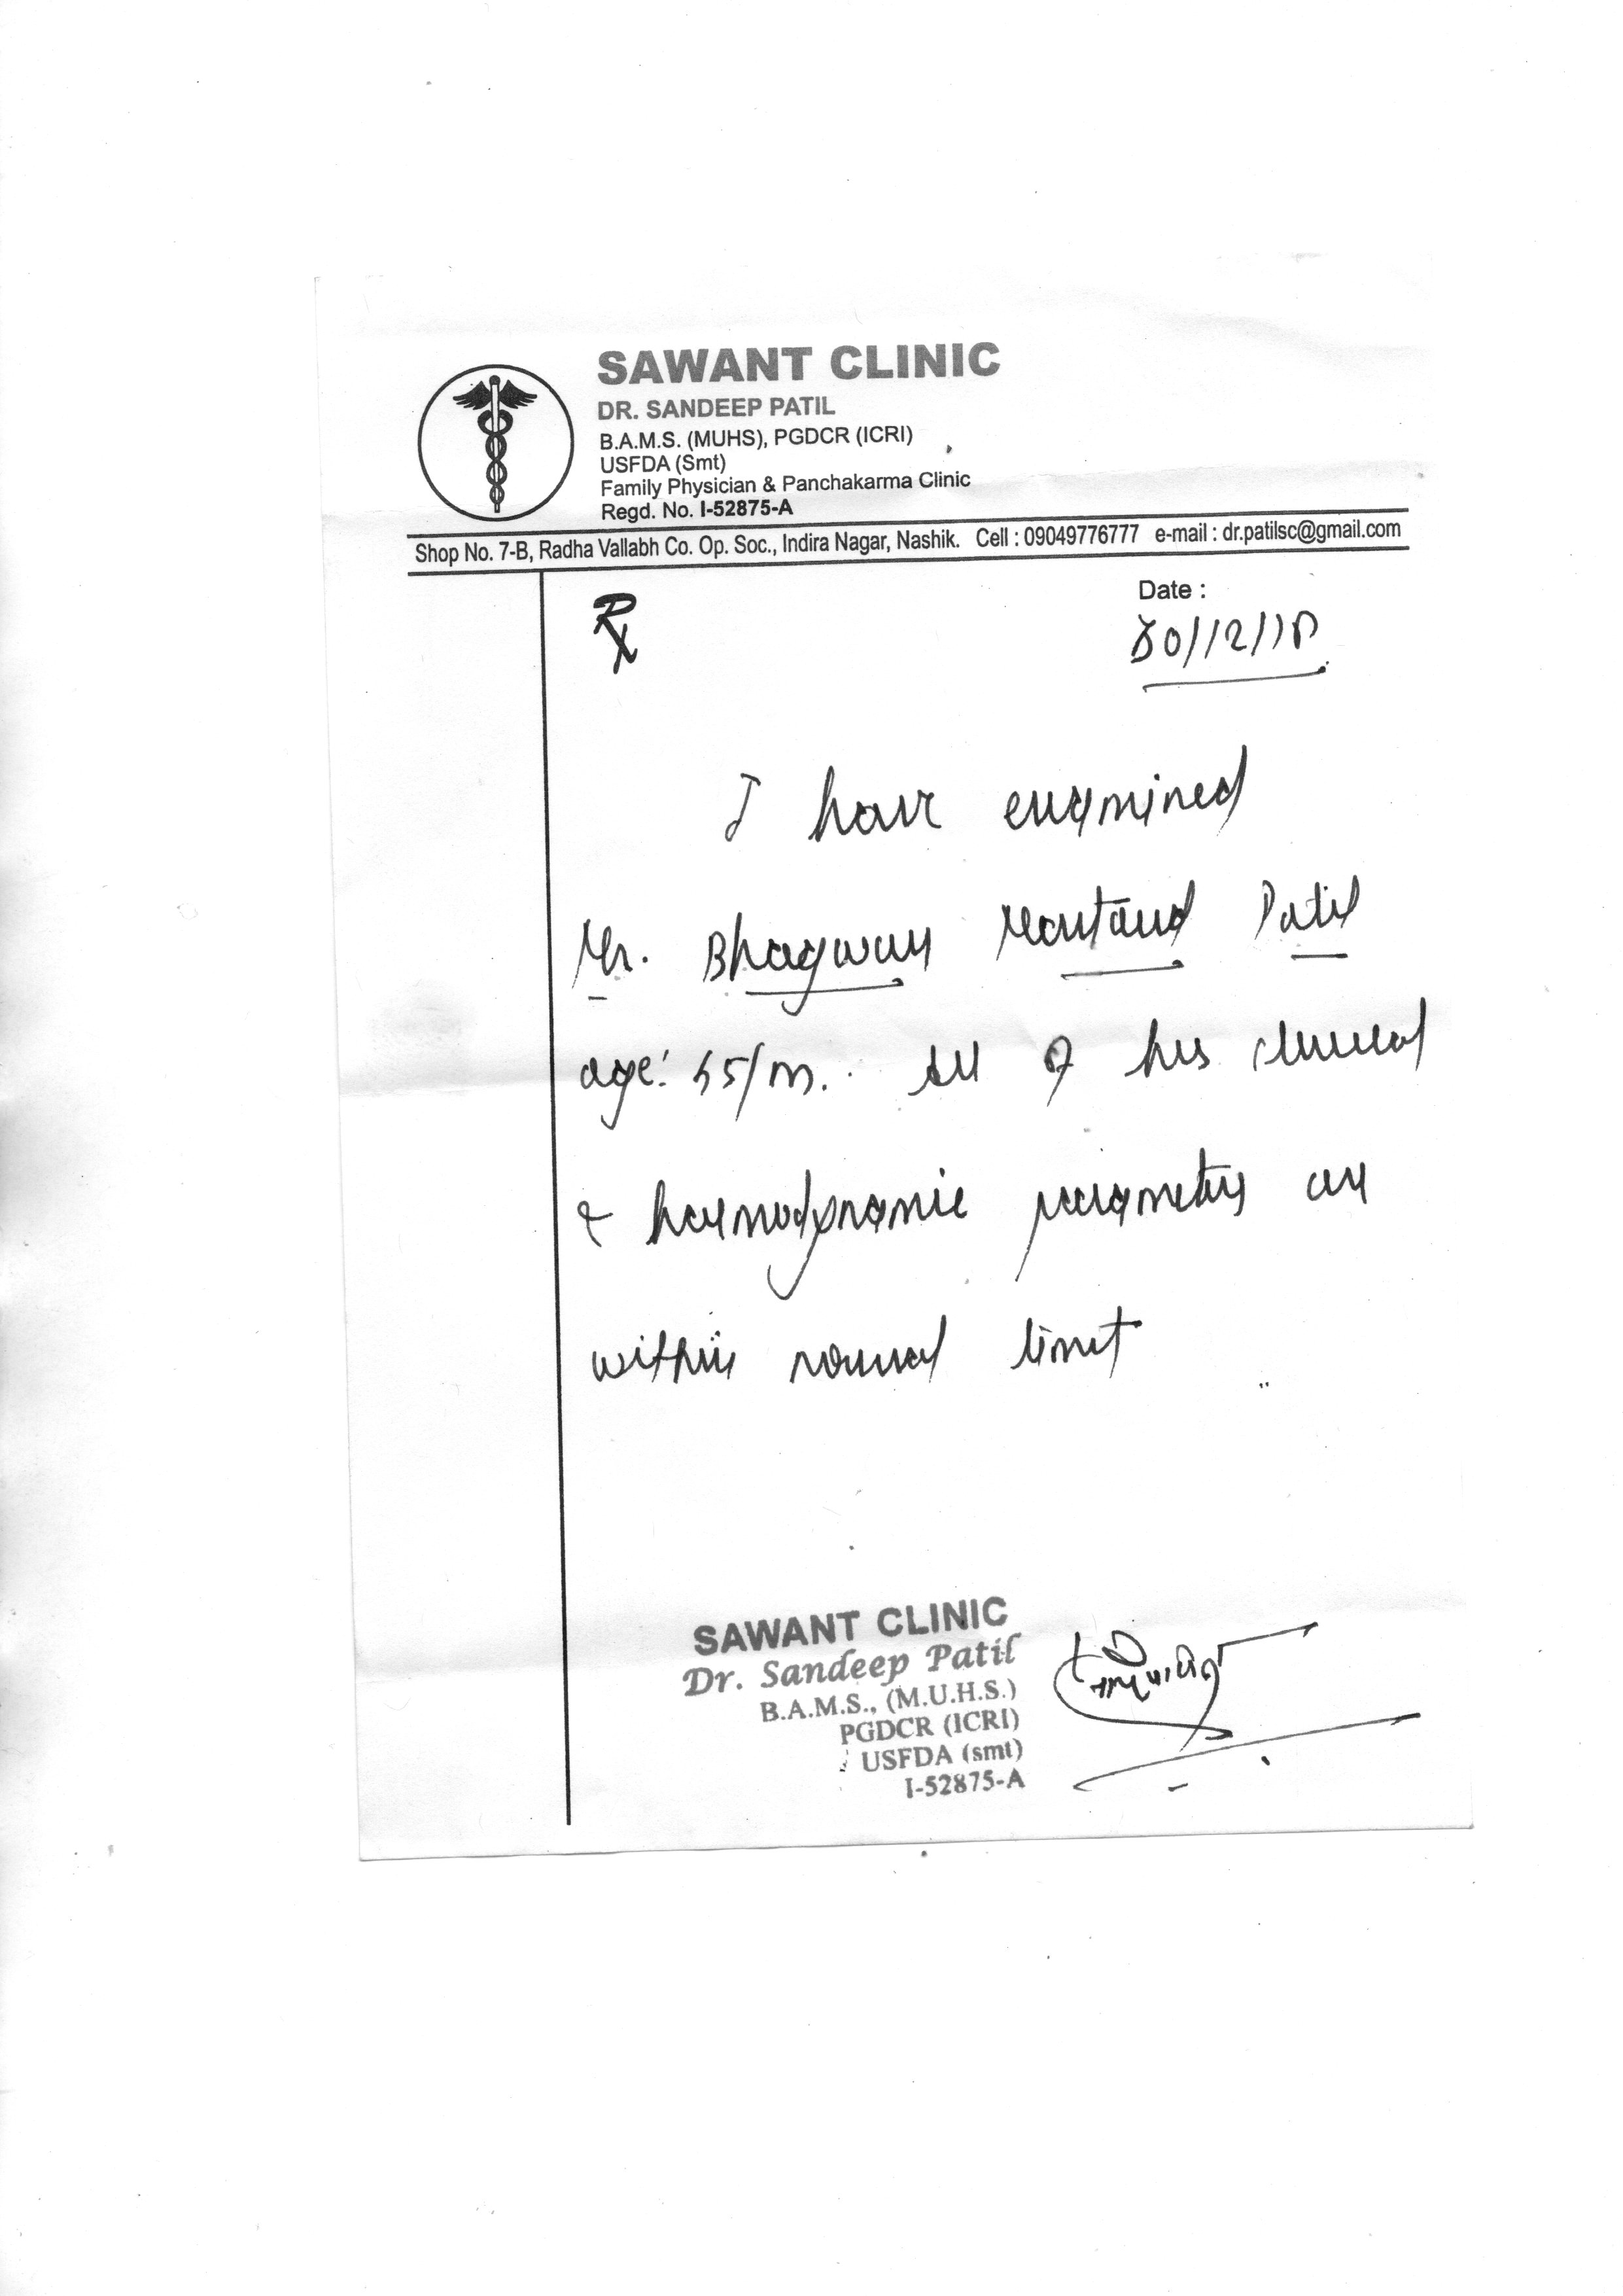 SAWANT CLINIC
DR. SANDEEP PATIL
B.A.M.S. (MUHS), PGDCR (ICRI)
USFDA (Smt)
Family Physician & Panchakarma Clinic
Regd. No. I-52875-A
Shop No. 7-B, Radha Vallabh Co. Op. Soc., Indira Nagar, Nashik. Cell : 09049776777 e-mail : dr.patilsc@gmail.com
Rx
Date :
I have examined
Mr. Bhagwan Martand Patil
age: 55/m. All of his clinical
& haemodynamic parameters are
within normal limit
SAWANT CLINIC
Dr. Sandeep Patil
B.A.M.S., (M.U.H.S.)
PGDCR (ICRI)
USFDA (smt)
I-52875-A